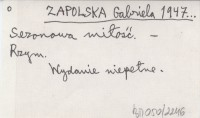 ZAPOLSKA Gabriela 1947...
Sezonowa miłość. —
Rzym.
Wydanie niepełne.